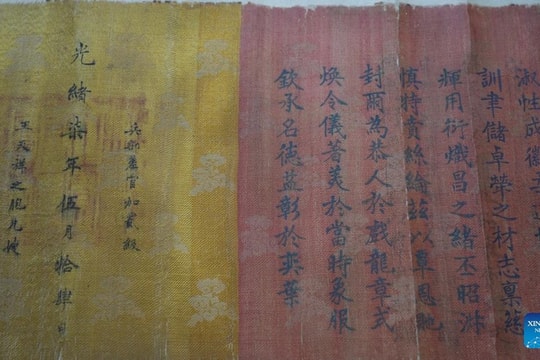 淑性成徽
訓聿儲卓犖之材志稟慈
輝用衍熾昌之緒丕昭淑
慎特賁絲綸茲以覃恩貤
封爾為恭人於戲龍章式
煥令儀著美於當時象服
欽承名德益彰於奕葉
兵部差官加貳級
光緒柒年伍月拾肆日
祥之胞兄嫂
XIN